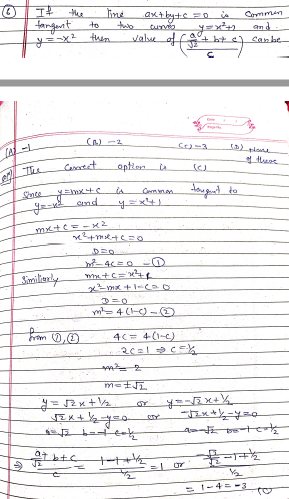 ⑥ If the line ax+by+c=0 is common
tangent to two curves y=x²+1 and
y=-x² then value of (a/√2 + b + c)/c can be
(A) -1 (B) -2 (C) -3 (D) None of these
The correct option is (C)
Since y=mx+c is common tangent to
y=-x² and y=x²+1
mx+c=-x²
x²+mx+c=0
D=0
m²-4c=0 -①
Similarly mx+c=x²+1
x²-mx+1-c=0
D=0
m²=4(1-c) -②
from ①,② 4c=4(1-c)
2c=1 ⇒ c=1/2
m²=2
m=±√2
y=√2x+1/2 or y=-√2x+1/2
√2x+1/2-y=0 or -√2x+1/2-y=0
a=√2 b=-1 c=1/2 a=-√2 b=-1 c=1/2
⇒ (a/√2 + b + c)/c = (1-1+1/2)/(1/2) = 1 or (-√2/√2 -1+1/2)/(1/2)
= 1-4=-3